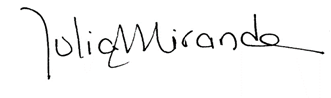 Julia Miranda